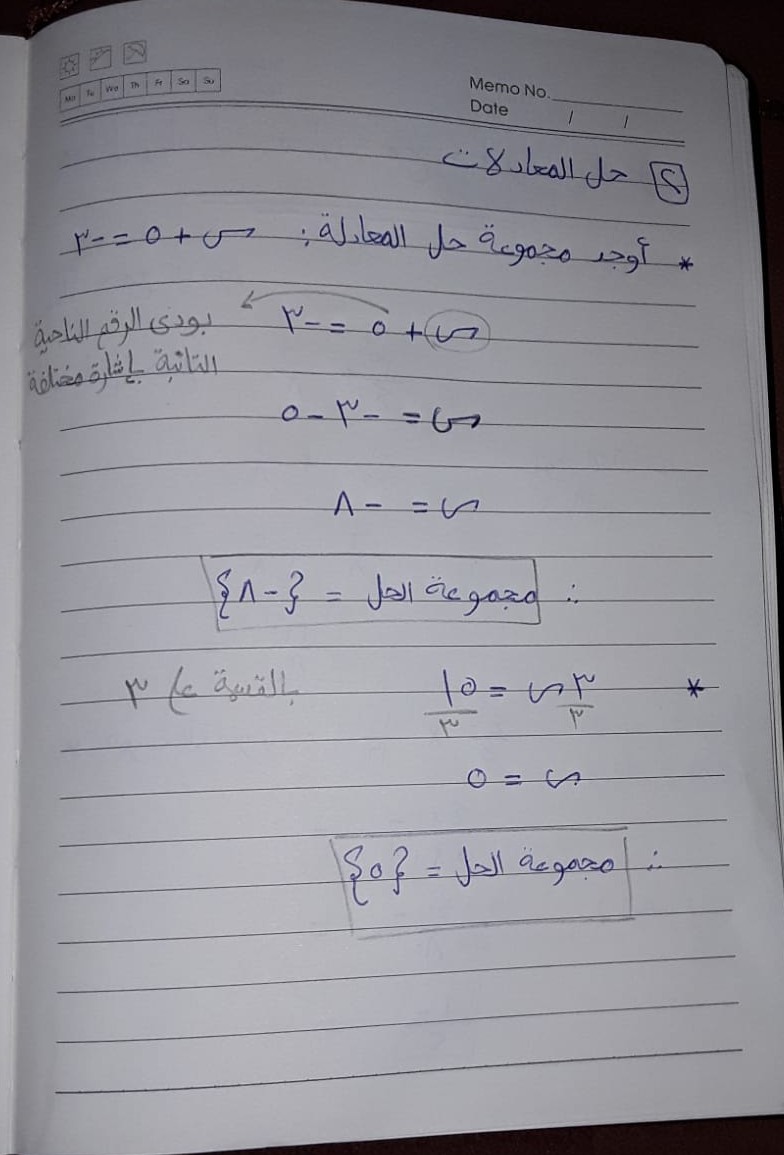 Mo Tu We Th Fr Sa Su
Memo No.
Date / /
٢ حل المعادلات
* أوجد مجموعة حل المعادلة: س + ٥ = -٣
س + ٥ = -٣
بودى الرقم الناحية
التانية بإشارة مختلفة
س = -٣ - ٥
س = -٨
∴ مجموعة الحل = {-٨}
* ٣س/٣ = ١٥/٣ بالقسمة على ٣
س = ٥
∴ مجموعة الحل = {٥}